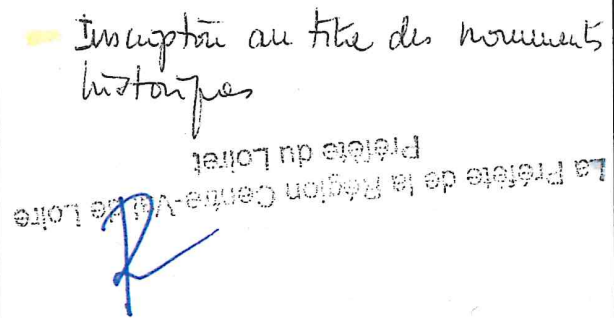 Inscription au titre des monuments
historiques
La Préfète de la Région Centre-Val de Loire
Préfète du Loiret